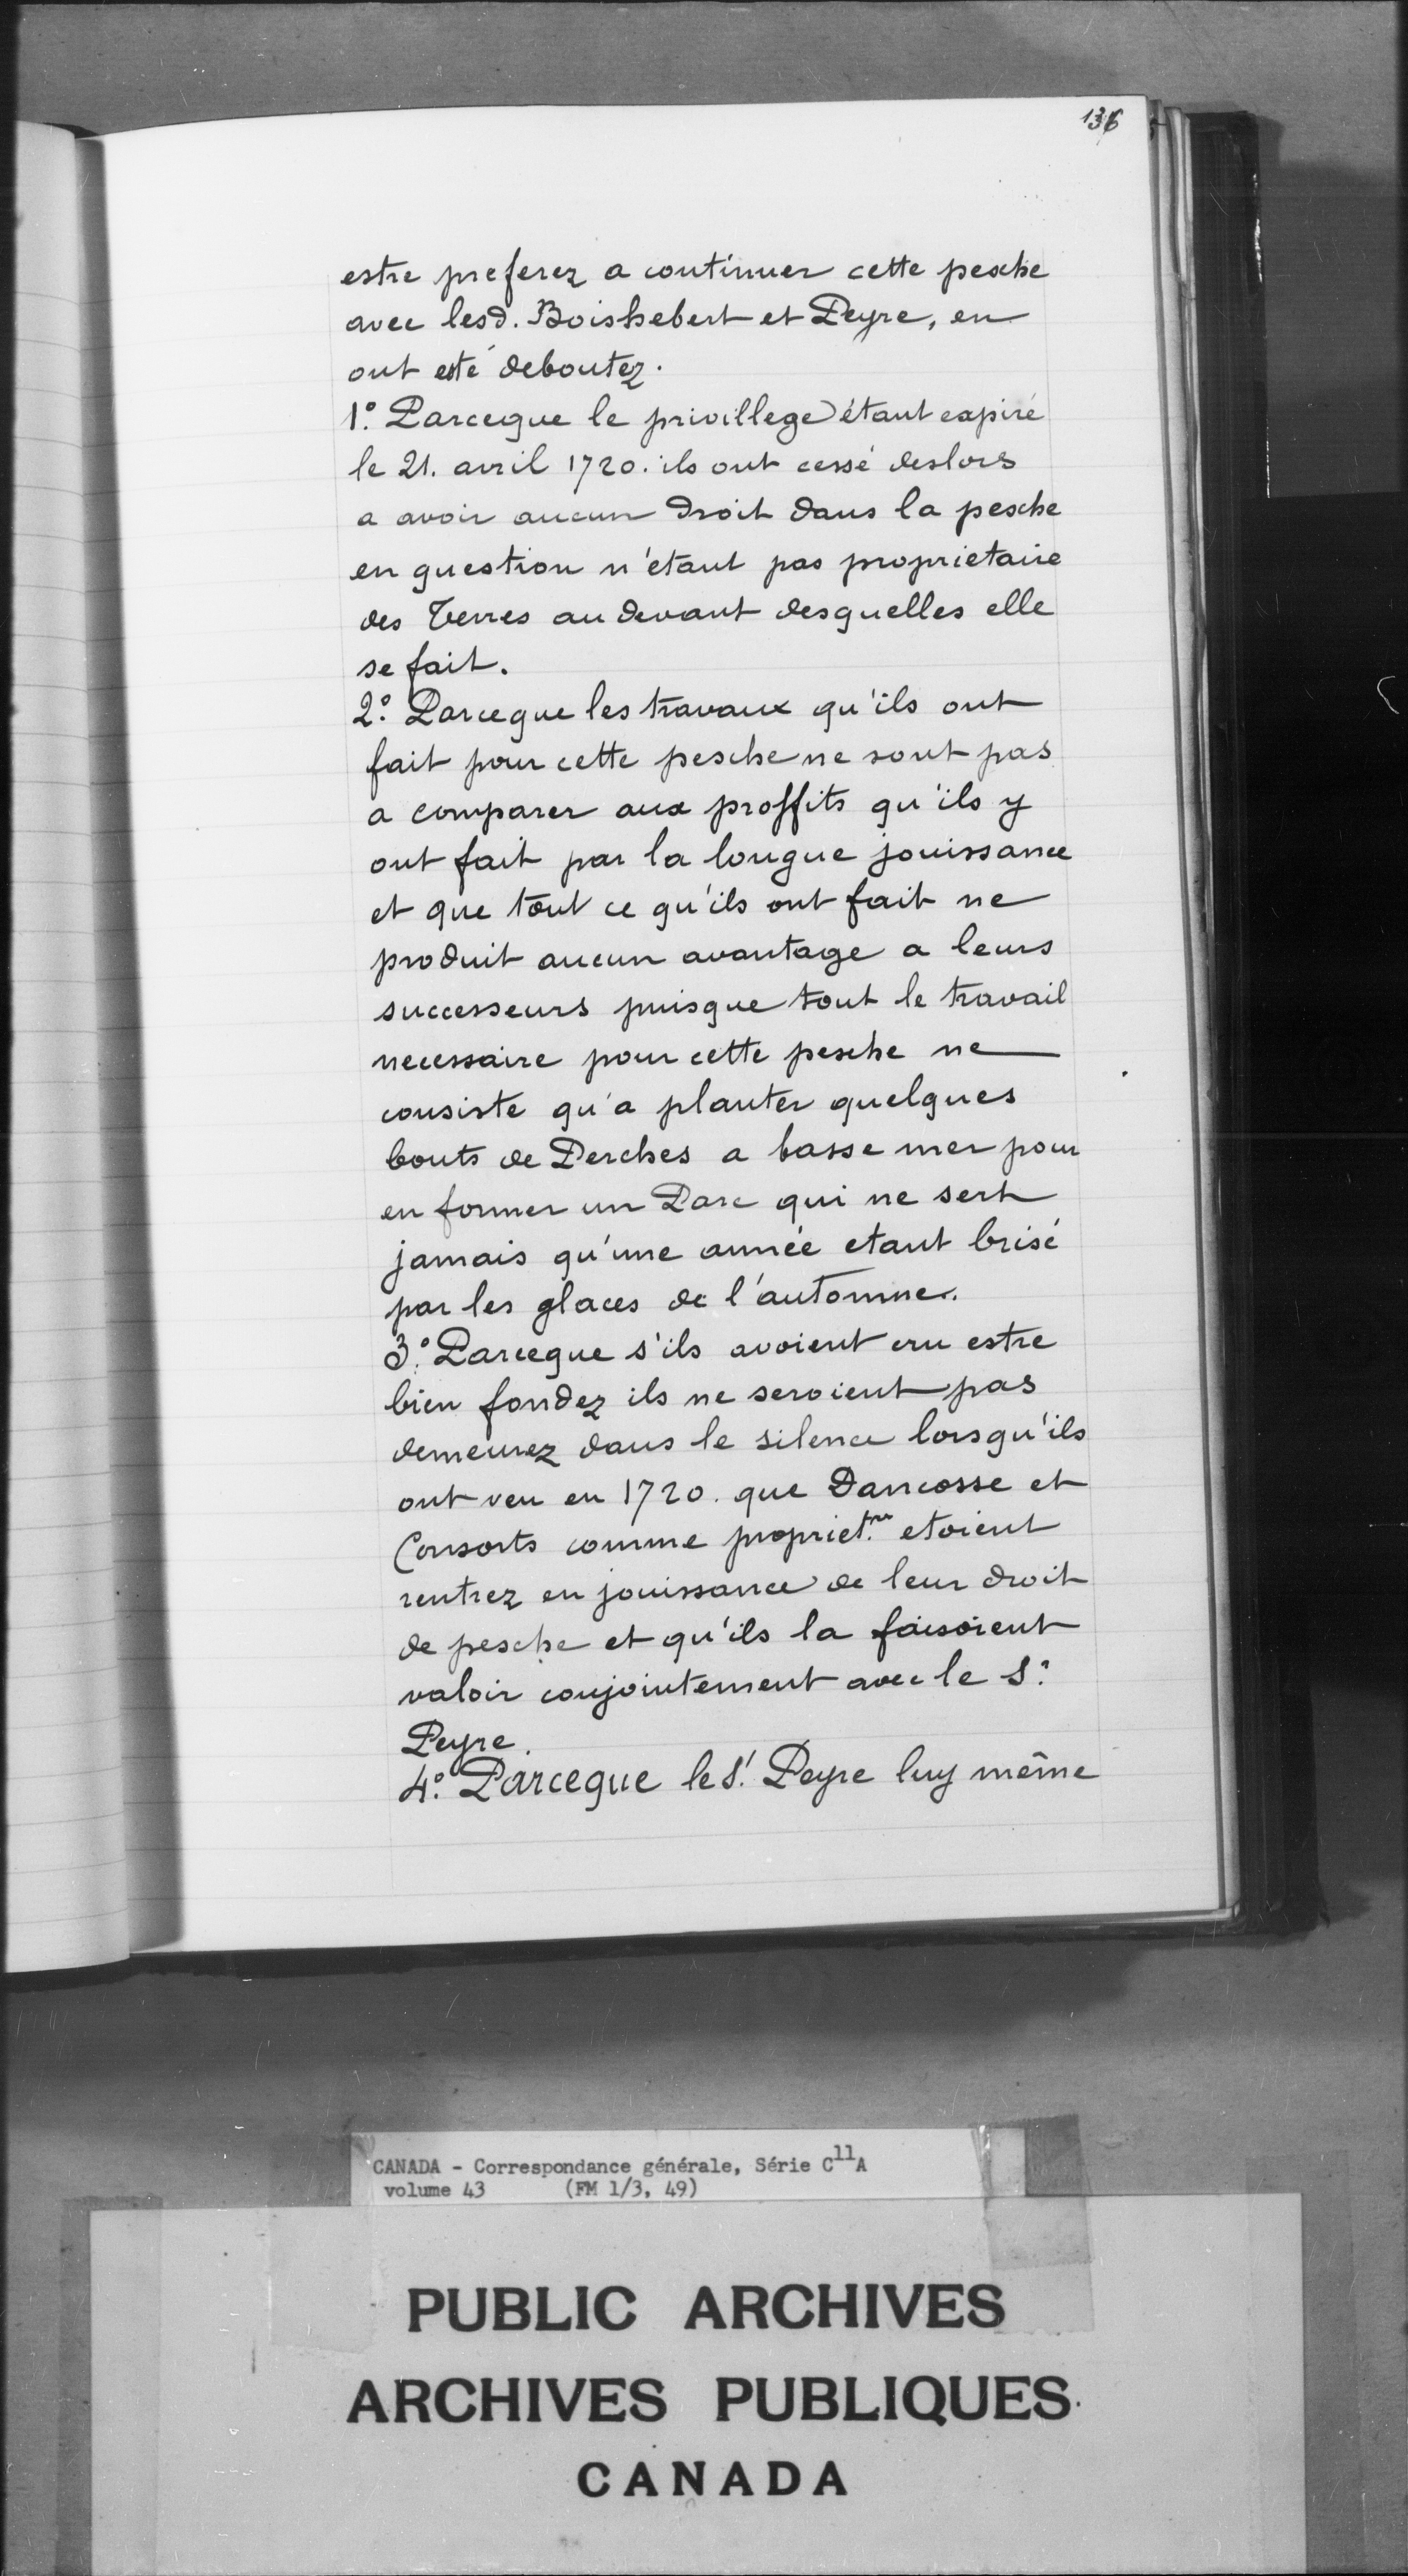 136
estre preferez a continuer cette pesche
avec lesd. Boishebert et Peyre, en
ont esté deboutez.
1º. Parceque le privillege étant expiré
le 21. avril 1720. ils ont cessé deslors
a avoir aucun droit dans la pesche
en question n'étant pas proprietaire
des Terres au devant desquelles elle
se fait.
2º. Parceque les travaux qu'ils ont
fait pour cette pesche ne sont pas
a comparer aux proffits qu'ils y
ont fait par la longue jouissance
et que tout ce qu'ils ont fait ne
produit aucun avantage a leurs
successeurs puisque tout le travail
necessaire pour cette pesche ne
consiste qu'a planter quelques
bouts de Perches a basse mer pour
en former un Parc qui ne sert
jamais qu'une année etant brisé
par les glaces de l'automne.
3º. Parceque s'ils avoient cru estre
bien fondez ils ne seroient pas
demeurez dans le silence lorsqu'ils
ont veu en 1720. que Dancosse et
Consorts comme propriet.res etoient
rentrez en jouissance de leur droit
de pesche et qu'ils la faisoient
valoir conjointement avec le S.r
Peyre.
4º. Parceque le S.r Peyre luy même
CANADA - Correspondance générale, Série C11A
volume 43 (FM 1/3, 49)
PUBLIC ARCHIVES
ARCHIVES PUBLIQUES
CANADA